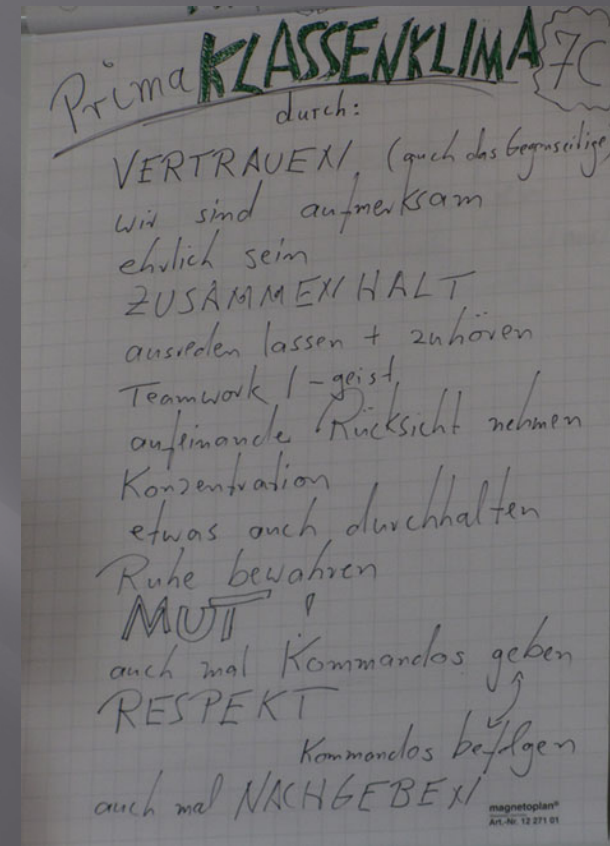 Prima KLASSENKLIMA 7C
durch:
VERTRAUEN, (auch das Gegenseitige)
wir sind aufmerksam
ehrlich sein
ZUSAMMENHALT
ausreden lassen + zuhören
Teamwork / -geist
aufeinander Rücksicht nehmen
Konzentration
etwas auch durchhalten
Ruhe bewahren
MUT !
auch mal Kommandos geben
RESPEKT
Kommandos befolgen
auch mal NACHGEBEN
magnetoplan®
Art.-Nr. 12 271 01